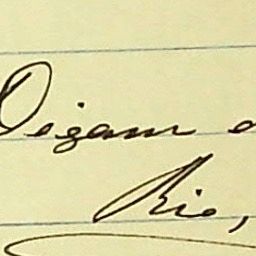 Digam o
Rio,